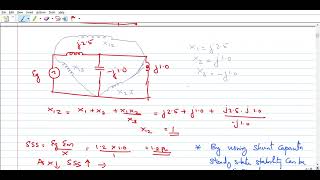 j2.5
x12
Eg
-j1.0
j1.0
x1 = j2.5
x2 = j1.0
x3 = -j1.0
x12 = x1 + x2 + x1x2/x3 = j2.5 + j1.0 + j2.5 . j1.0/-j1.0
x12 = 1
SSS = Eg Em/x = 1.2 x 1.0/1 =
As x↓ SSS ↑ →
* By using shunt capacitor
steady state stability can be